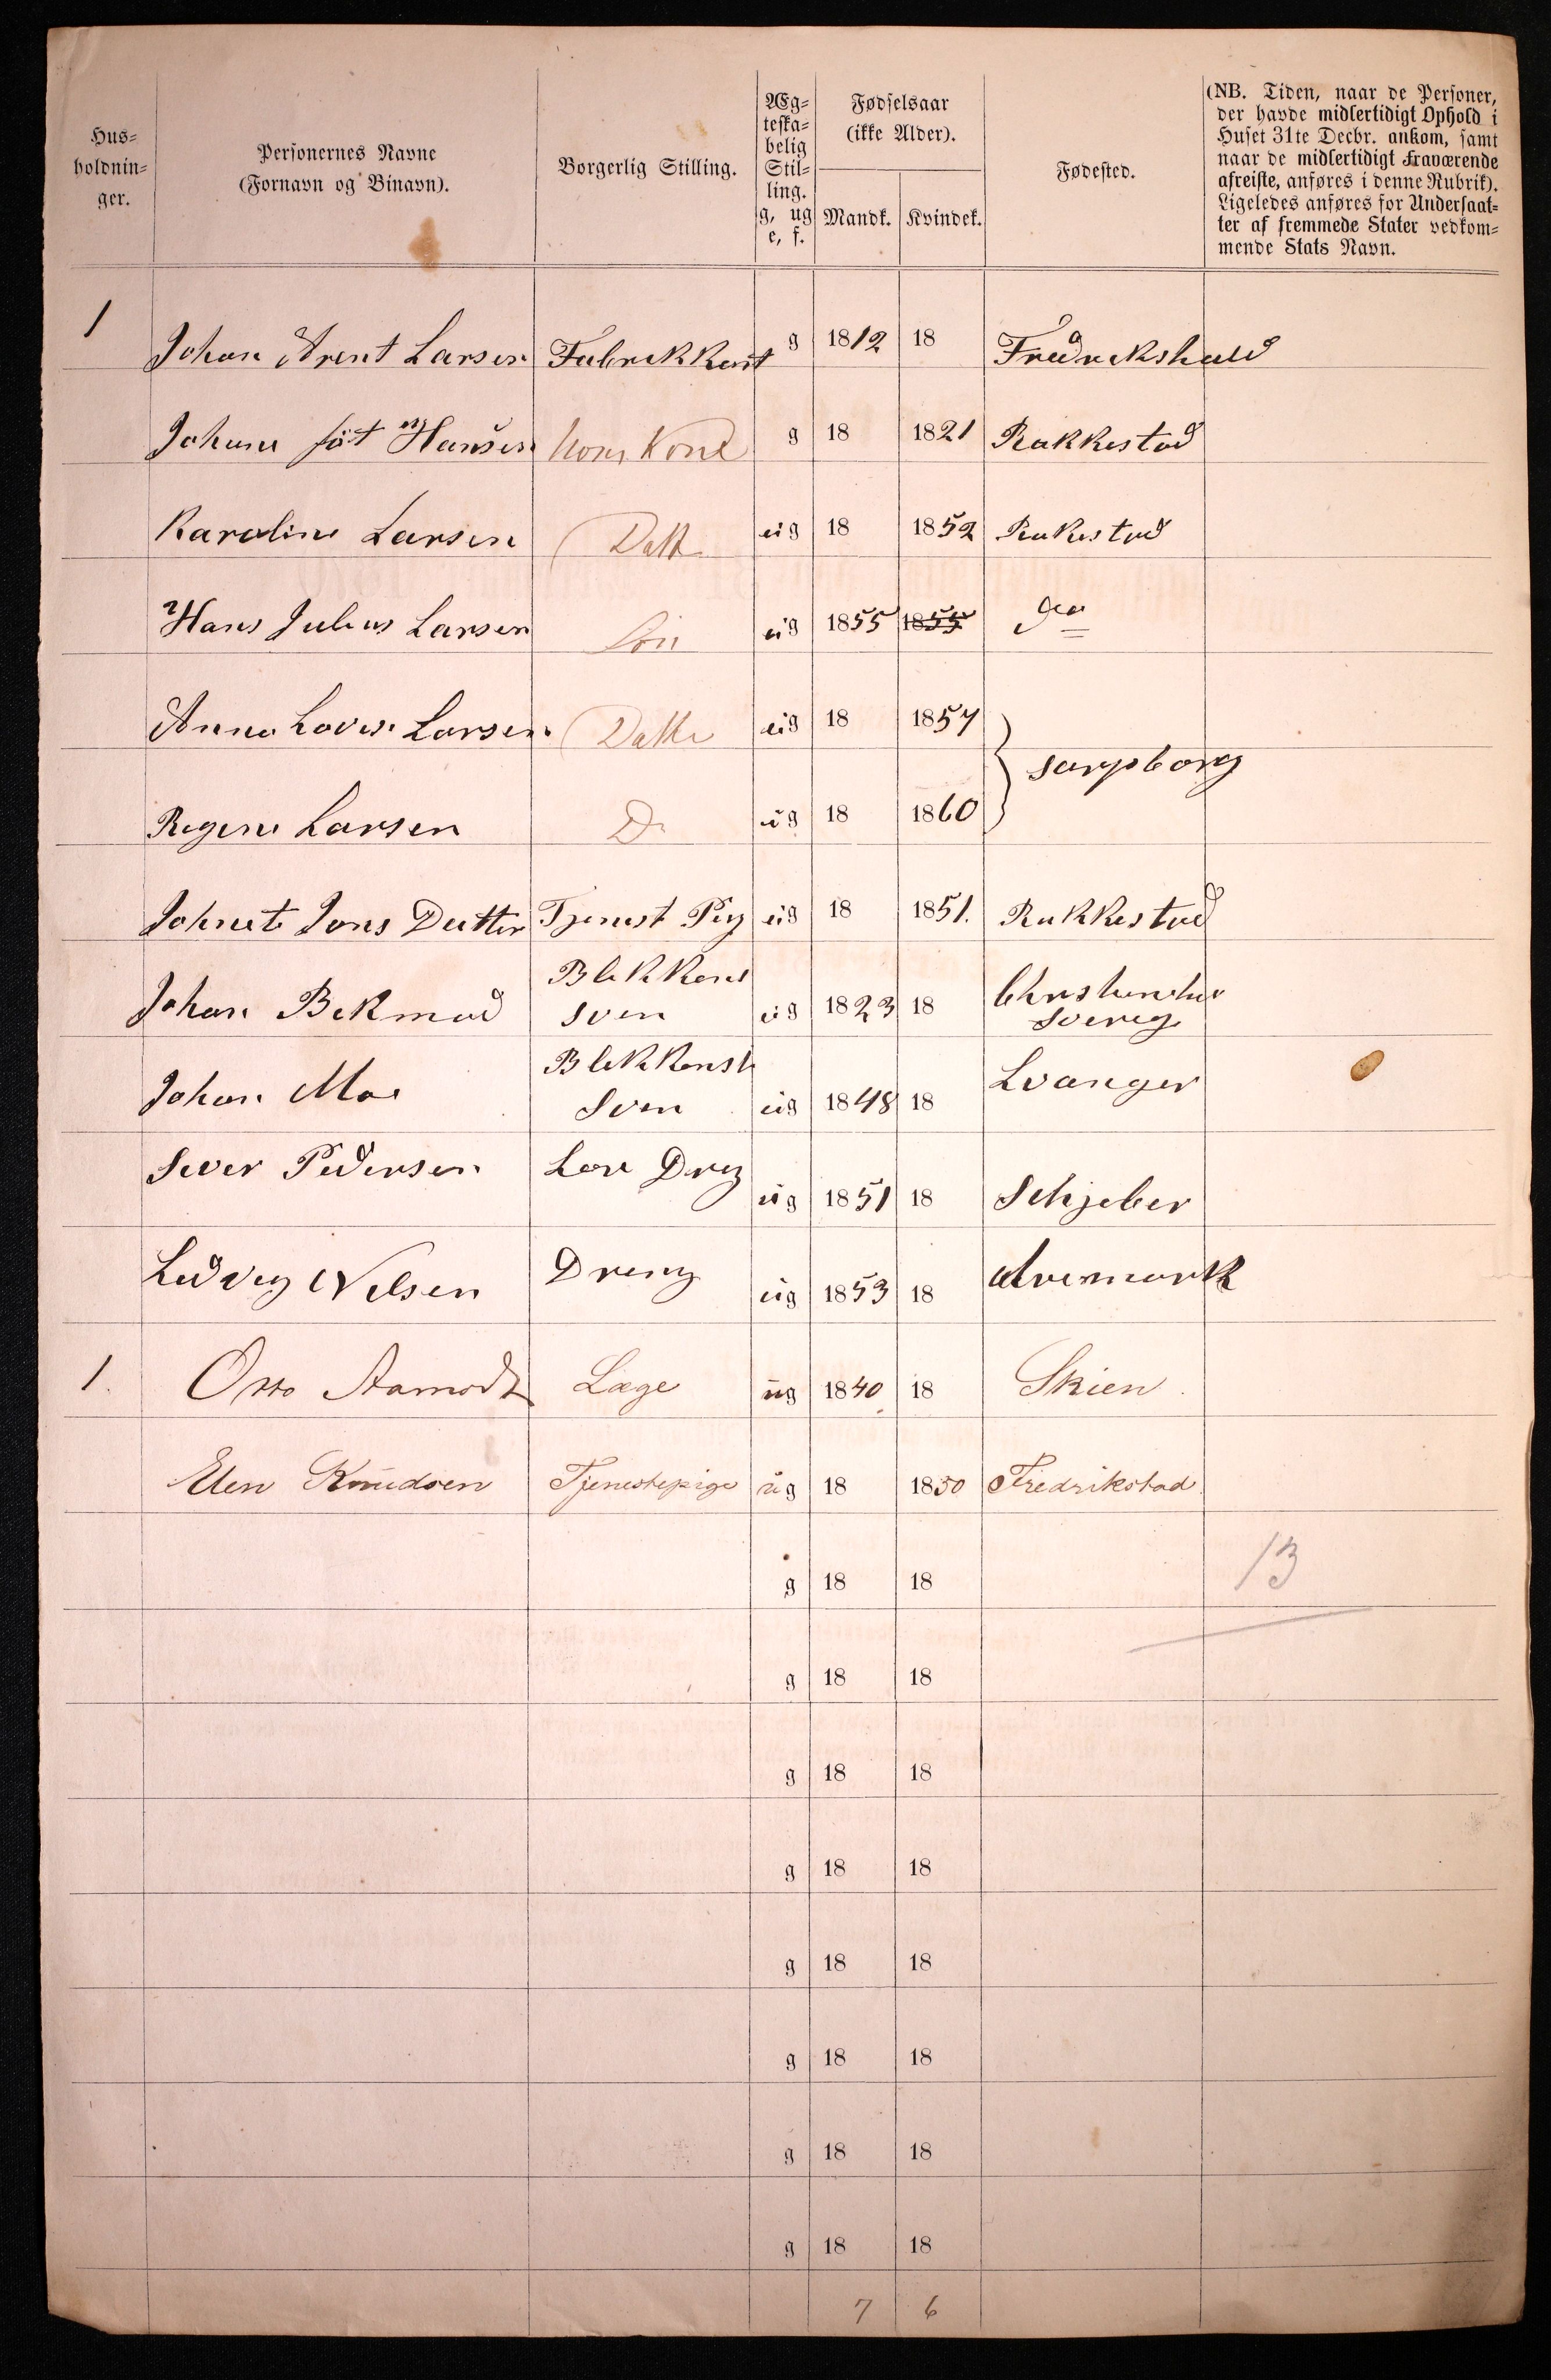 Hus-
holdnin-
ger.
Personernes Navne
(Fornavn og Binavn).
Borgerlig Stilling.
Æg-
teska-
belig
Stil-
ling.
g, ug
e, f.
Fødselsaar
(ikke Alder).
Mandk. Kvindek.
Fødested.
(NB. Tiden, naar de Personer,
der havde midlertidigt Ophold i
Huset 31te Decbr. ankom, samt
naar de midlertidigt Fraværende
afreiste, anføres i denne Rubrik).
Ligeledes anføres for Undersaat-
ter af fremmede Stater vedkom-
mende Stats Navn.
1 Johan Arent Larsen Fabrekkent g 1812 18 Fredrekshald
Johane föt Hansen hans Kone g 18 1821 Rakkestad
Karoline Larsen Datt ug 18 1852 Rakestad
Hans Julius Larsen Sön ug 1855 1855
Anna Lovise Larsen Datte ug 18 1857
Sarpborg
Regine Larsen D ug 18 1860
Johnete Jons Datter Tjenest Pig ug 18 1851. Rakkestad
Johan Bekmad Blekkens
Sven ug 1823 18
Sverig
Johan Moe Blekkensl
Sven ug 1848 18 Lvanger
Sever Pedersen Lere Dreg ug 1851 18 Schjeber
Ludvig Nelsen Dreng ug 1853 18 Aremark
1. Otto Aamodt Læge ug 1840 18 Skien.
Elen Knudsen Tjenestepige ug 18 1850 Fredrikstad.
g 18 18
13
g 18 18
g 18 18
g 18 18
g 18 18
g 18 18
g 18 18
g 18 18
7 6